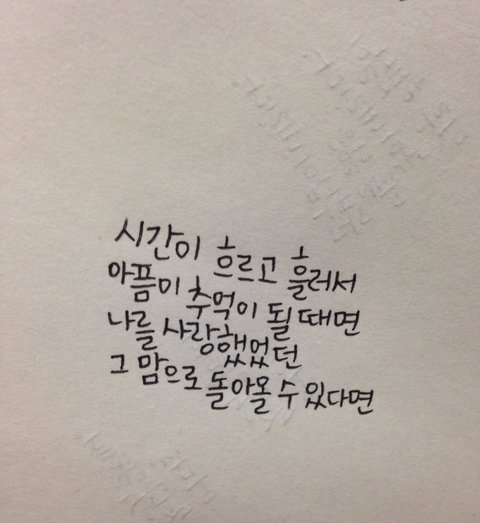 시간이 흐르고 흘러서
아픔이 추억이 될때면
나를 사랑했었던
그 맘으로 돌아올 수 있다면